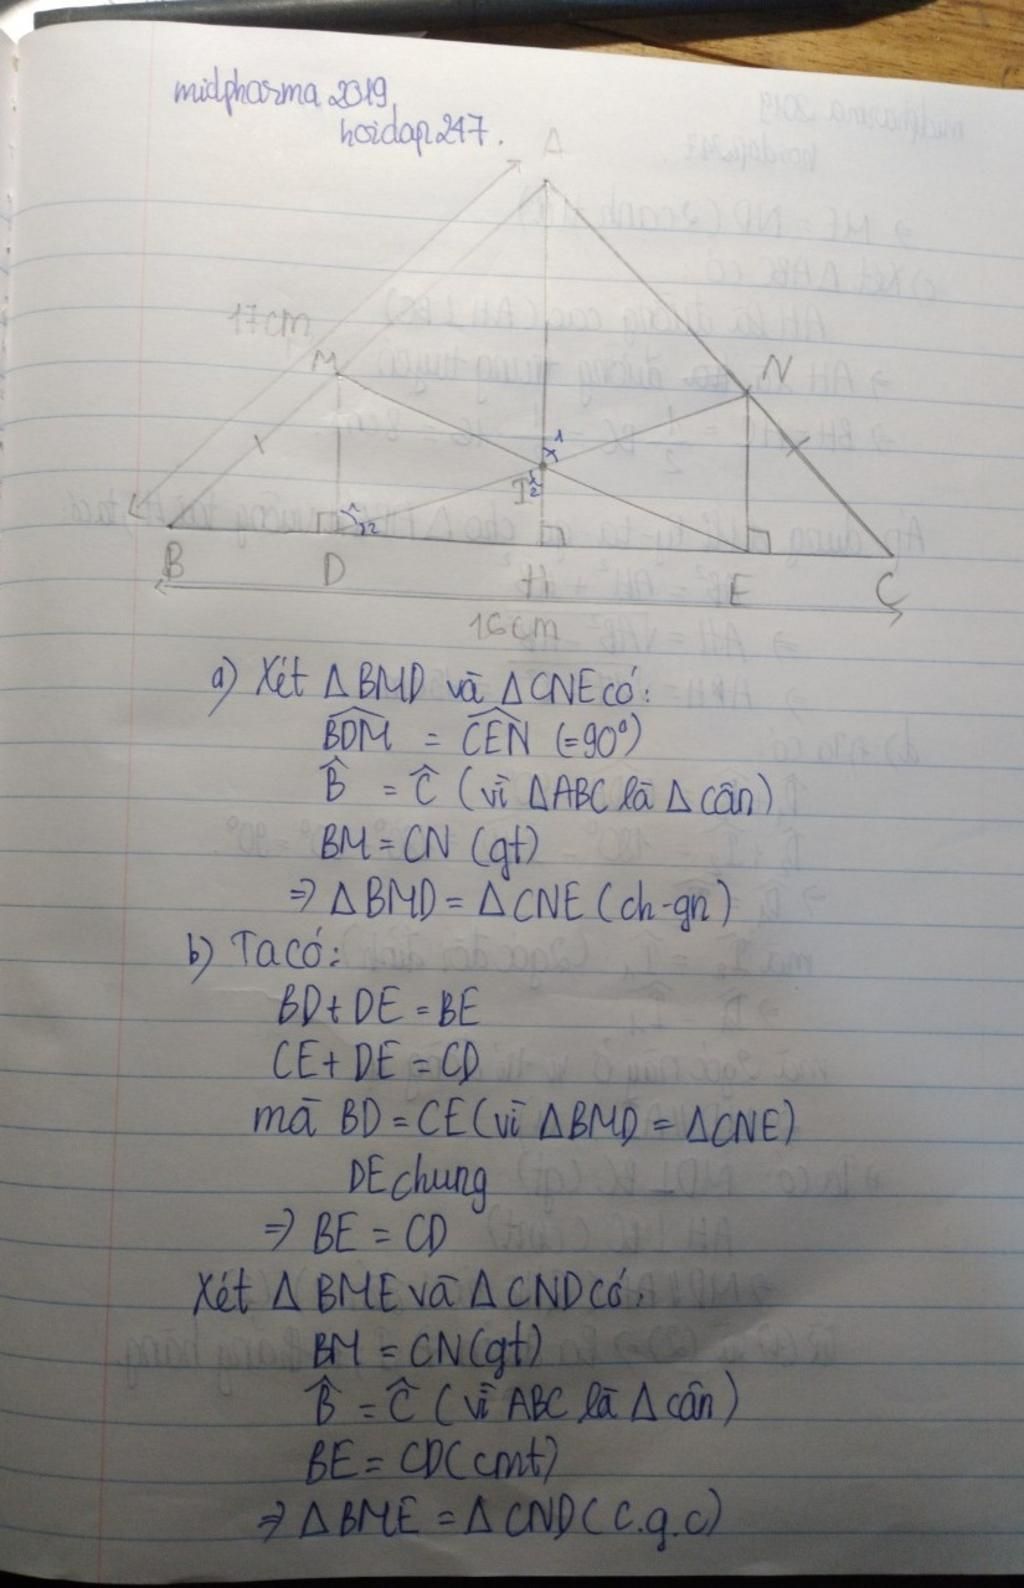 midpharma 2019
hoidap247.
A
17cm
M
N
1
I 2
12
B
D
H
E
C
16cm
a) Xét Δ BMD và Δ CNE có:
BDM = CEN (=90°)
B̂ = Ĉ (vì ΔABC là Δ cân)
BM = CN (gt)
=> Δ BMD = Δ CNE (ch-gn)
b) Ta có:
BD + DE = BE
CE + DE = CD
mà BD = CE (vì ΔBMD = ΔCNE)
DE chung
=> BE = CD
Xét Δ BME và Δ CND có:
BM = CN (gt)
B̂ = Ĉ (vì ABC là Δ cân)
BE = CD (cmt)
=> Δ BME = Δ CND (c.g.c)